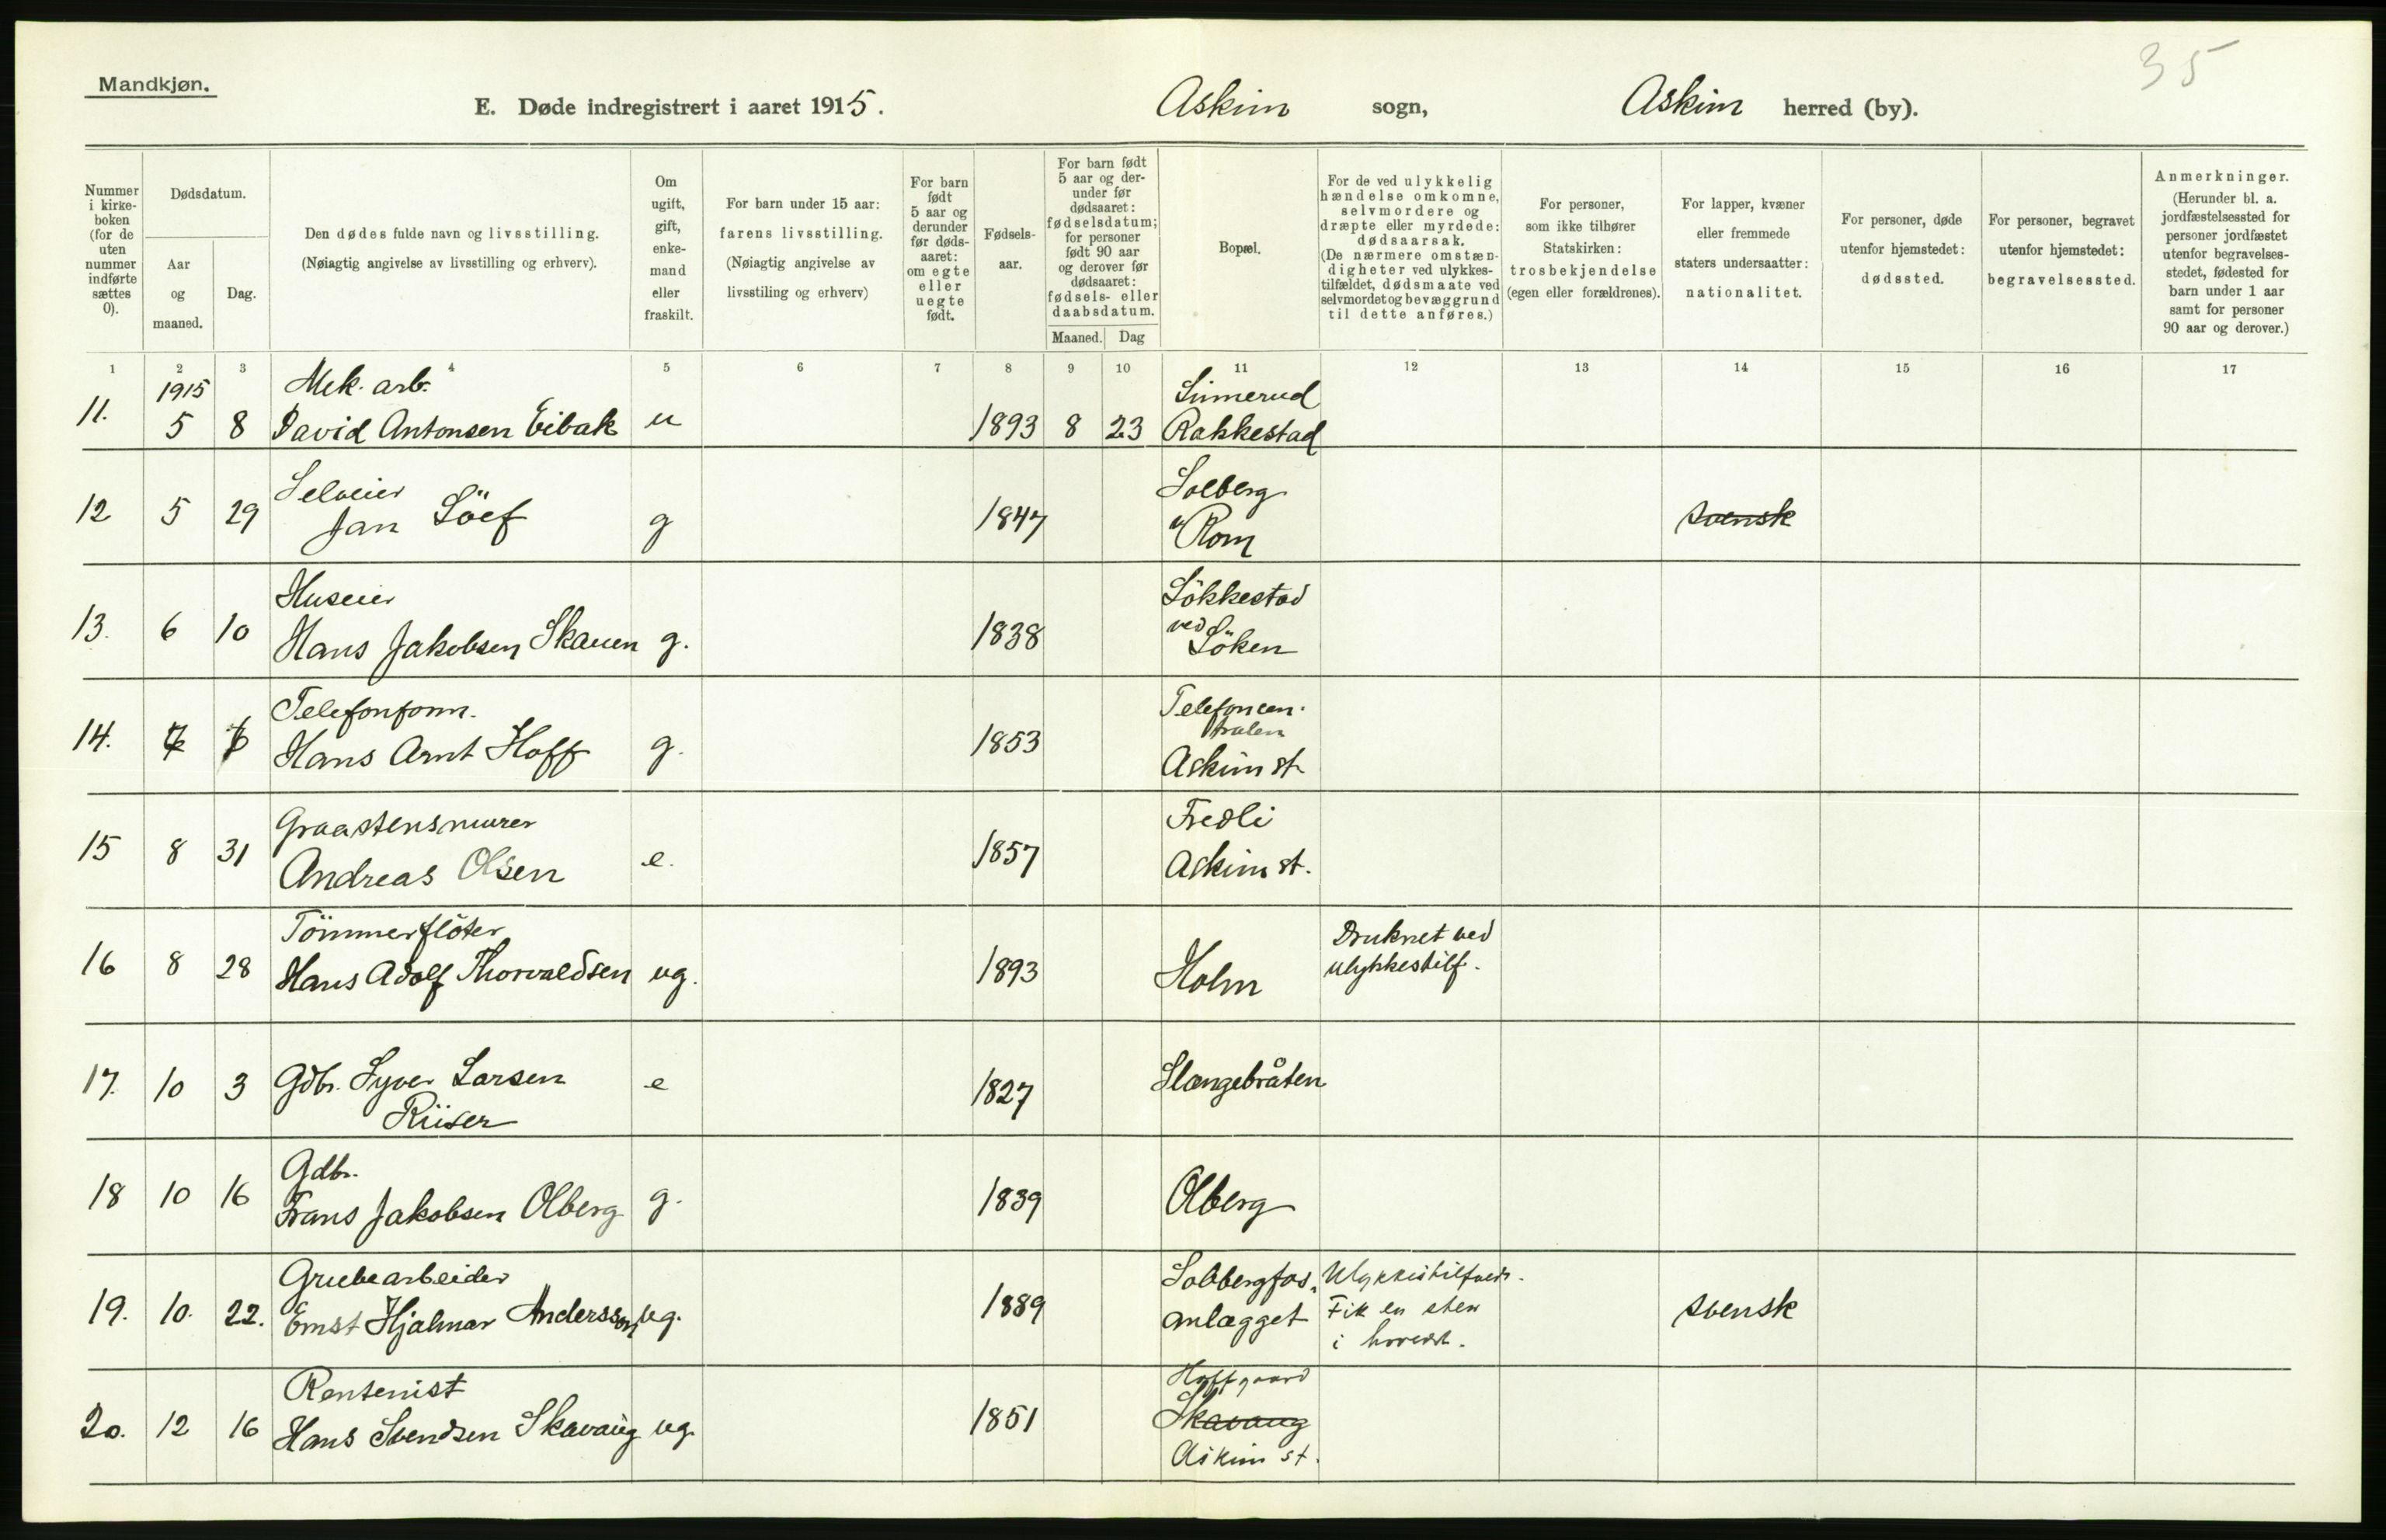 35
Mandkjøn.
E. Døde indregistrert i aaret 1915. Askim sogn, Askim herred (by).
Nummer i kirkeboken (for de uten nummer indførte sættes 0).
Dødsdatum.
Aar og maaned.
Dag.
Den dødes fulde navn og livsstilling.
(Nøiagtig angivelse av livsstilling og erhverv).
Om ugift, gift, enkemand eller fraskilt.
For barn under 15 aar:
farens livsstilling.
(Nøiagtig angivelse av
livsstiling og erhverv)
For barn født 5 aar og derunder før dødsaaret: om egte eller uegte født.
Fødselsaar.
For barn født 5 aar og derunder før dødsaaret: fødselsdatum; for personer født 90 aar og derover før dødsaaret: fødsels- eller daabsdatum.
Maaned. Dag
Bopæl.
For de ved ulykkelig hændelse omkomne, selvmordere og dræpte eller myrdede: dødsaarsak.
(De nærmere omstændigheter ved ulykkestilfældet, dødsmaate ved selvmordet og bevæggrund til dette anføres.)
For personer, som ikke tilhører Statskirken: trosbekjendelse (egen eller forældrenes).
For lapper, kvæner eller fremmede staters undersaatter: nationalitet.
For personer, døde utenfor hjemstedet: dødssted.
For personer, begravet utenfor hjemstedet: begravelsessted.
Anmerkninger.
(Herunder bl. a. jordfæstelsessted for personer jordfæstet utenfor begravelsesstedet, fødested for barn under 1 aar samt for personer 90 aar og derover.)
1 2 3 4 5 6 7 8 9 10 11 12 13 14 15 16 17
1915 Mek. arb. Sinnerud
11. 5 8 David Antonsen Eibak u 1893 8 23 Rakkestad
Selveier Solberg
12 5 29 Jan Löef g 1847 Rom svensk
Huseier Lökkestad
13. 6 10 Hans Jakobsen Skauen g. 1838 ved Löken
Telefonform. Telefoncentralen
14. Hans Arnt Hoff g. 1853 Askim st
Graastensmurer Fredli
15 8 31 Andreas Olsen e. 1857 Askim st.
Tömmerflöter Druknet ved
16 8 28 Hans Adolf Thorvaldsen ug. 1893 Holm ulykkestilf.
17. 10 3 Gdbr. Syver Larsen e 1827 Slangebråten
Riiser
Gdbr.
18 10 16 Frans Jakobsen Olberg g. 1839 Olberg
Grubearbeider Solbergfos. Ulykkestilfælde.
19. 10. 22. Ernst Hjalmar Andersson ug. 1889 anlægget Fik en sten svensk
i hovedet.
Rentenist Hoffgaard
20. 12 16 Hans Svendsen Skavaug ug. 1851 Skavaug
Askim st.